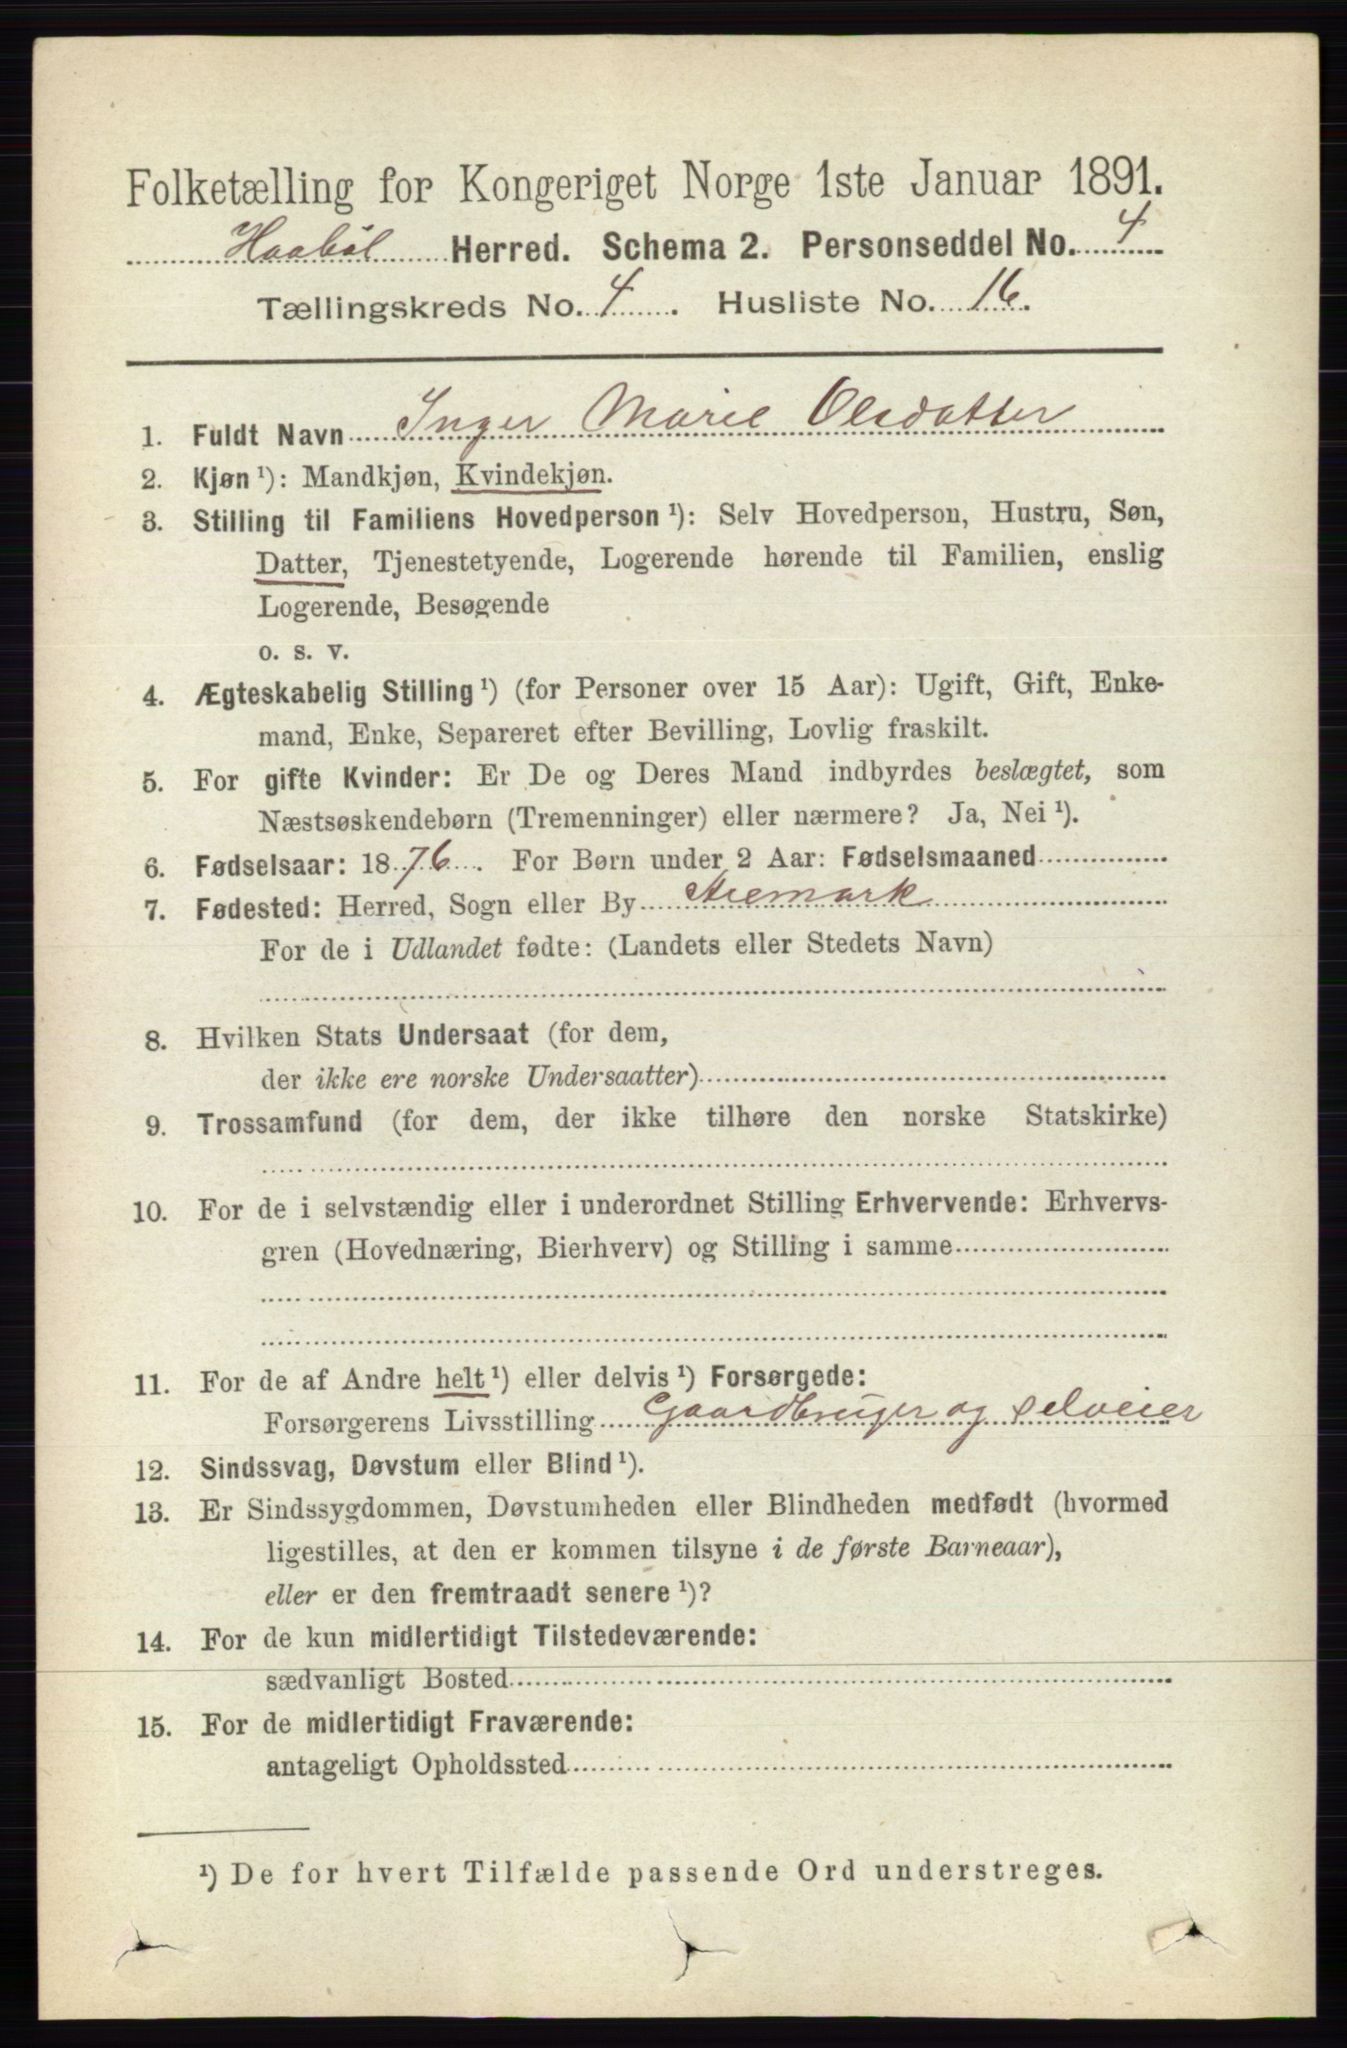 Folketælling for Kongeriget Norge 1ste Januar 1891.
Haabøl Herred. Schema 2. Personseddel No. 4
Tællingskreds No. 4. Husliste No. 16.
1. Fuldt Navn Inger Marie Olsdatter
2. Kjøn ¹): Mandkjøn, Kvindekjøn.
3. Stilling til Familiens Hovedperson ¹): Selv Hovedperson, Hustru, Søn,
Datter, Tjenestetyende, Logerende hørende til Familien, enslig
Logerende, Besøgende
o. s. v.
4. Ægteskabelig Stilling ¹) (for Personer over 15 Aar): Ugift, Gift, Enke-
mand, Enke, Separeret efter Bevilling, Lovlig fraskilt.
5. For gifte Kvinder: Er De og Deres Mand indbyrdes beslægtet, som
Næstsøskendebørn (Tremenninger) eller nærmere? Ja, Nei ¹).
6. Fødselsaar: 1876. For Børn under 2 Aar: Fødselsmaaned
7. Fødested: Herred, Sogn eller By Aremark
For de i Udlandet fødte: (Landets eller Stedets Navn)
8. Hvilken Stats Undersaat (for dem,
der ikke ere norske Undersaatter)
9. Trossamfund (for dem, der ikke tilhøre den norske Statskirke)
10. For de i selvstændig eller i underordnet Stilling Erhvervende: Erhvervs-
gren (Hovednæring, Bierhverv) og Stilling i samme
11. For de af Andre helt ¹) eller delvis ¹) Forsørgede:
Forsørgerens Livsstilling Gaardbruger og selveier
12. Sindssvag, Døvstum eller Blind ¹).
13. Er Sindssygdommen, Døvstumheden eller Blindheden medfødt (hvormed
ligestilles, at den er kommen tilsyne i de første Barneaar),
eller er den fremtraadt senere ¹)?
14. For de kun midlertidigt Tilstedeværende:
sædvanligt Bosted
15. For de midlertidigt Fraværende:
antageligt Opholdssted
¹) De for hvert Tilfælde passende Ord understreges.